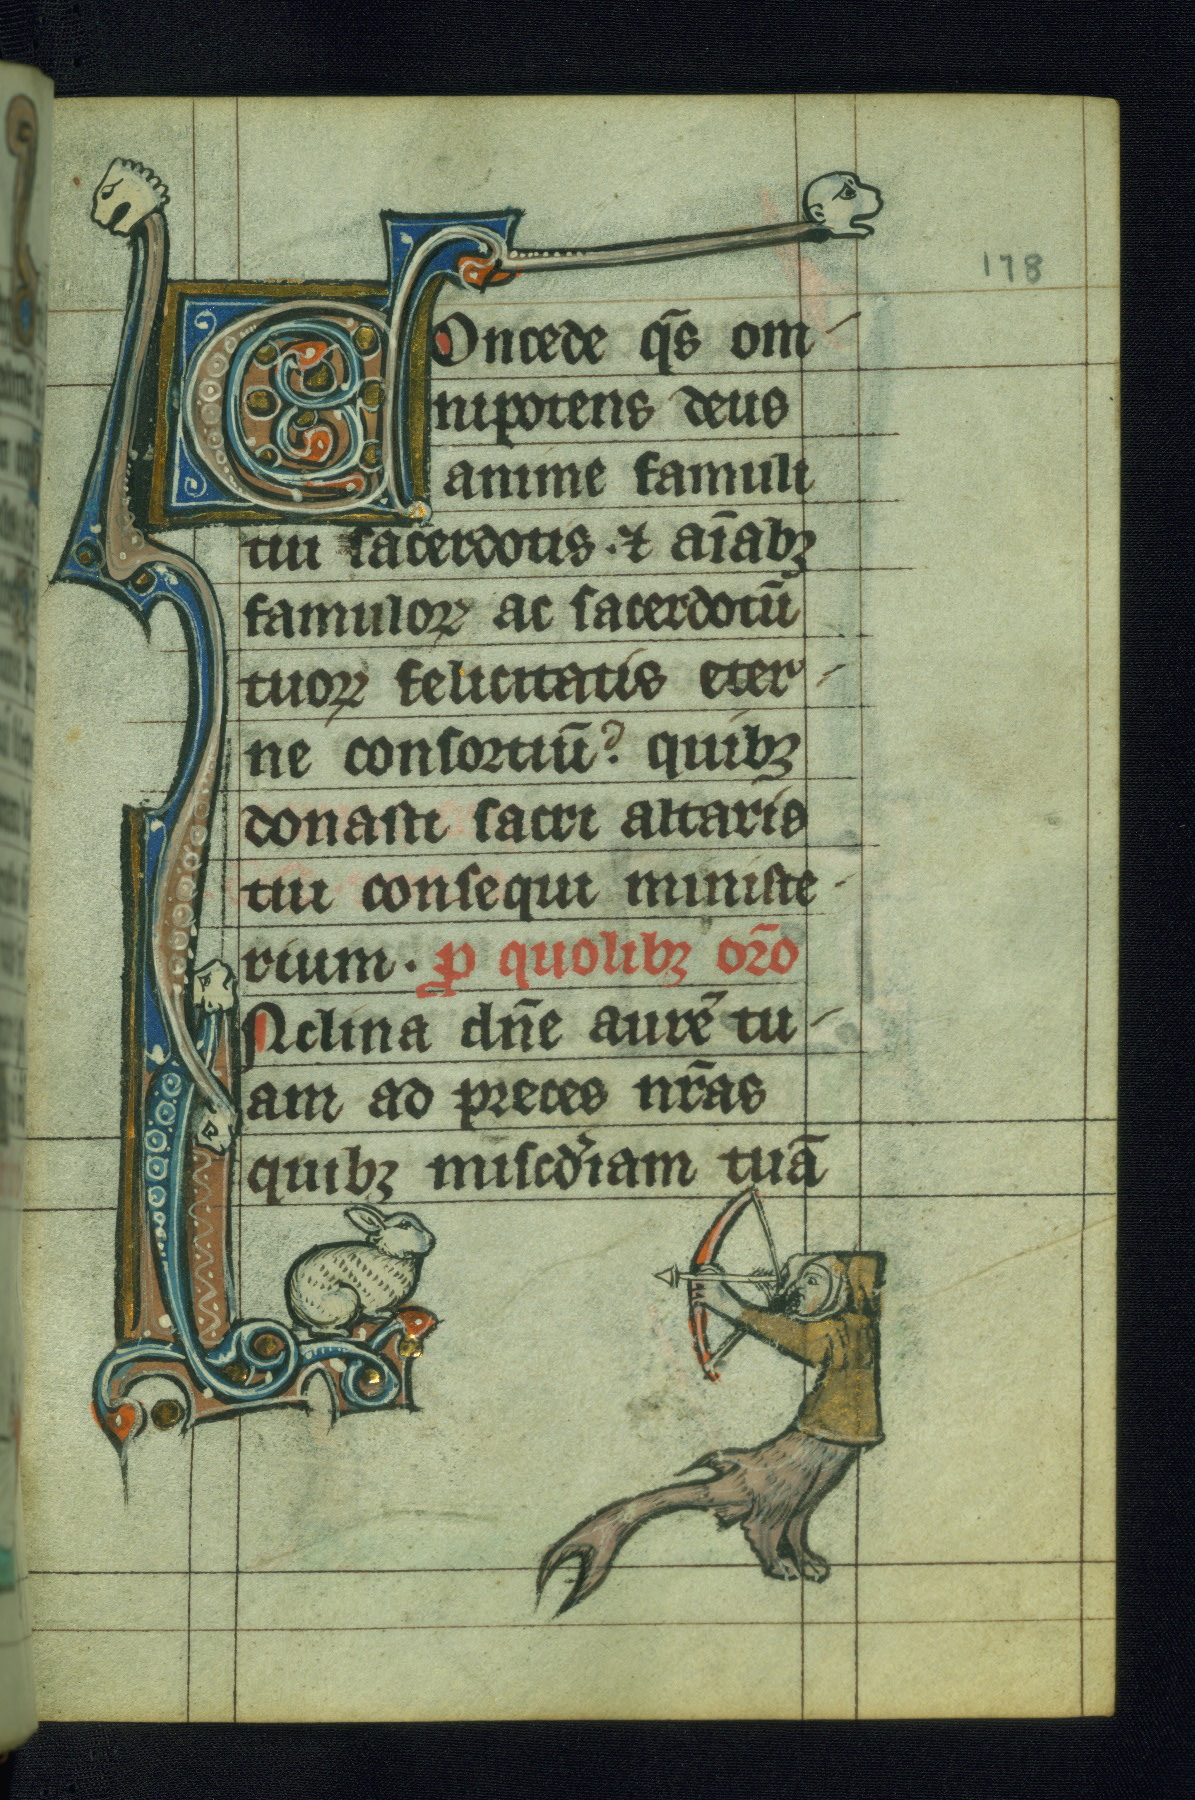 178
COncede q̄s om-
nipotens deus
anime famuli
tui sacerdotis. ⁊ aīabꝫ
famuloꝝ ac sacerdotū
tuoꝝ felicitatis eter-
ne consortiū? quibꝫ
donasti sacri altaris
tui consequi ministe-
rium. p̄ quolibꝫ or̄o
Nclina dn̄e aurē tu-
am ad preces nr̄as
quibꝫ misc̄diam tuā